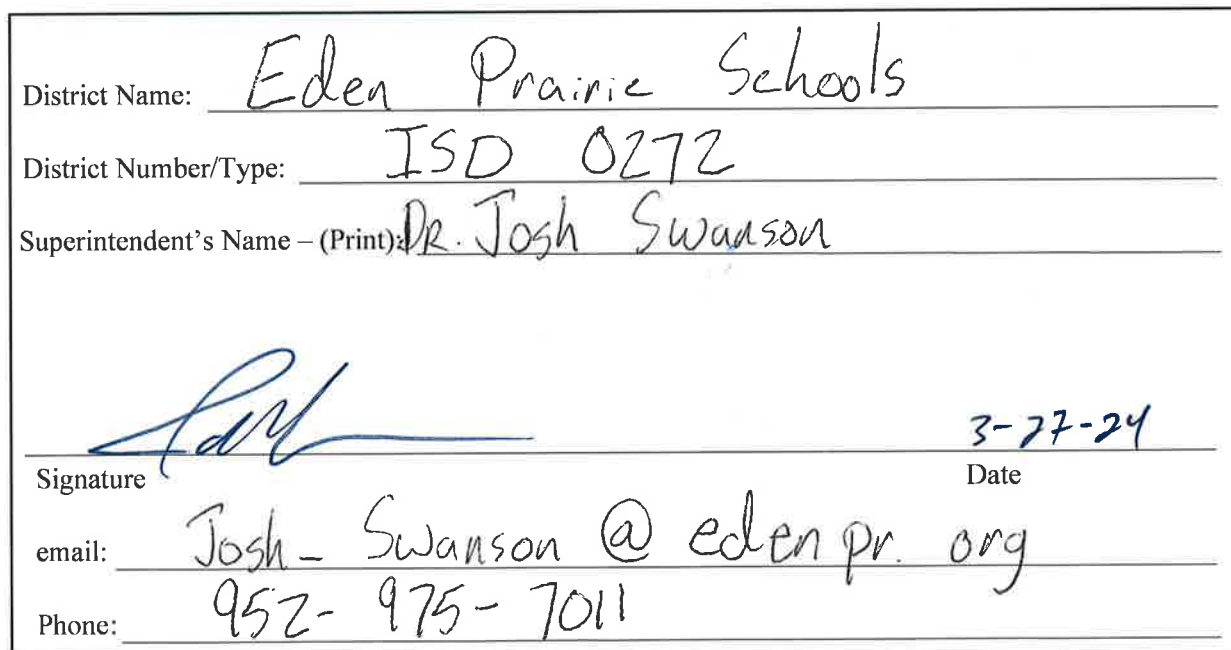 District Name: Eden Prairie Schools
District Number/Type: ISD 0272
Superintendent's Name – (Print): DR. Josh Swanson
3-27-24
Signature Date
email: Josh_Swanson@edenpr.org
Phone: 952-975-7011